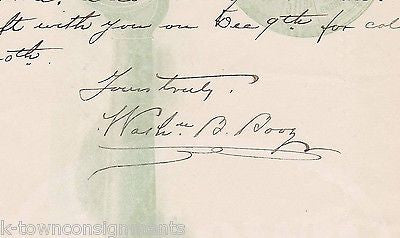 ft with you on Dec 9th for col
0th.
Yours truly,
Washn. B. Booz
k-townconsignments